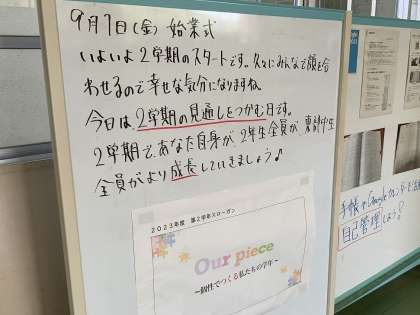 9月1日(金) 始業式
いよいよ2学期のスタートです。久々にみんなで顔を合
わせるので幸せな気分になりますね
今日は、2学期の見通しをつかむ日です。
2学期で、あなた自身が、2年生全員が、東諫中生
全員がより成長していきましょう♪
2023年度 第2学年スローガン
Our piece
~個性でつくる私たちの学年~
手帳や
自己管理しよう!